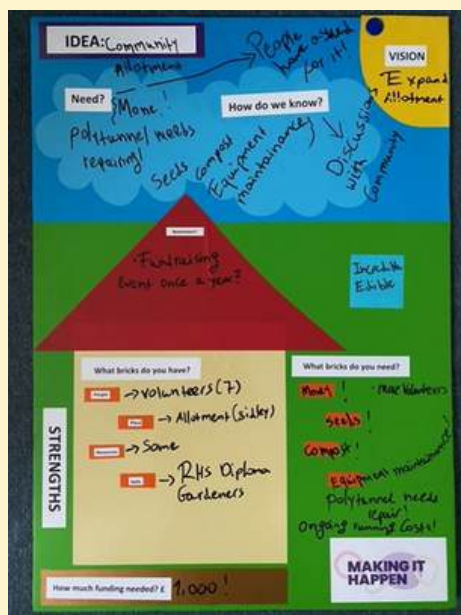 IDEA: Community
Allotment
People
have a need
for it!
VISION
Expand
Allotment
Need?
Money!
polytunnel needs
repairing!
How do we know?
Seeds
compost
Equipment
maintainance
Discussion
with
Community
Fundraising
event once a year?
Incredible
Edible
STRENGTHS
What bricks do you have?
People → volunteers (7)
Place → Allotment (Sidley)
Resources → Some
Skills → RHS Diploma
Gardeners
What bricks do you need?
Money!
• more volunteers
Seeds!
Compost!
Equipment maintainance!
Polytunnel needs
repair!
Ongoing running costs!
How much funding needed? £ 1,000!
MAKING IT
HAPPEN